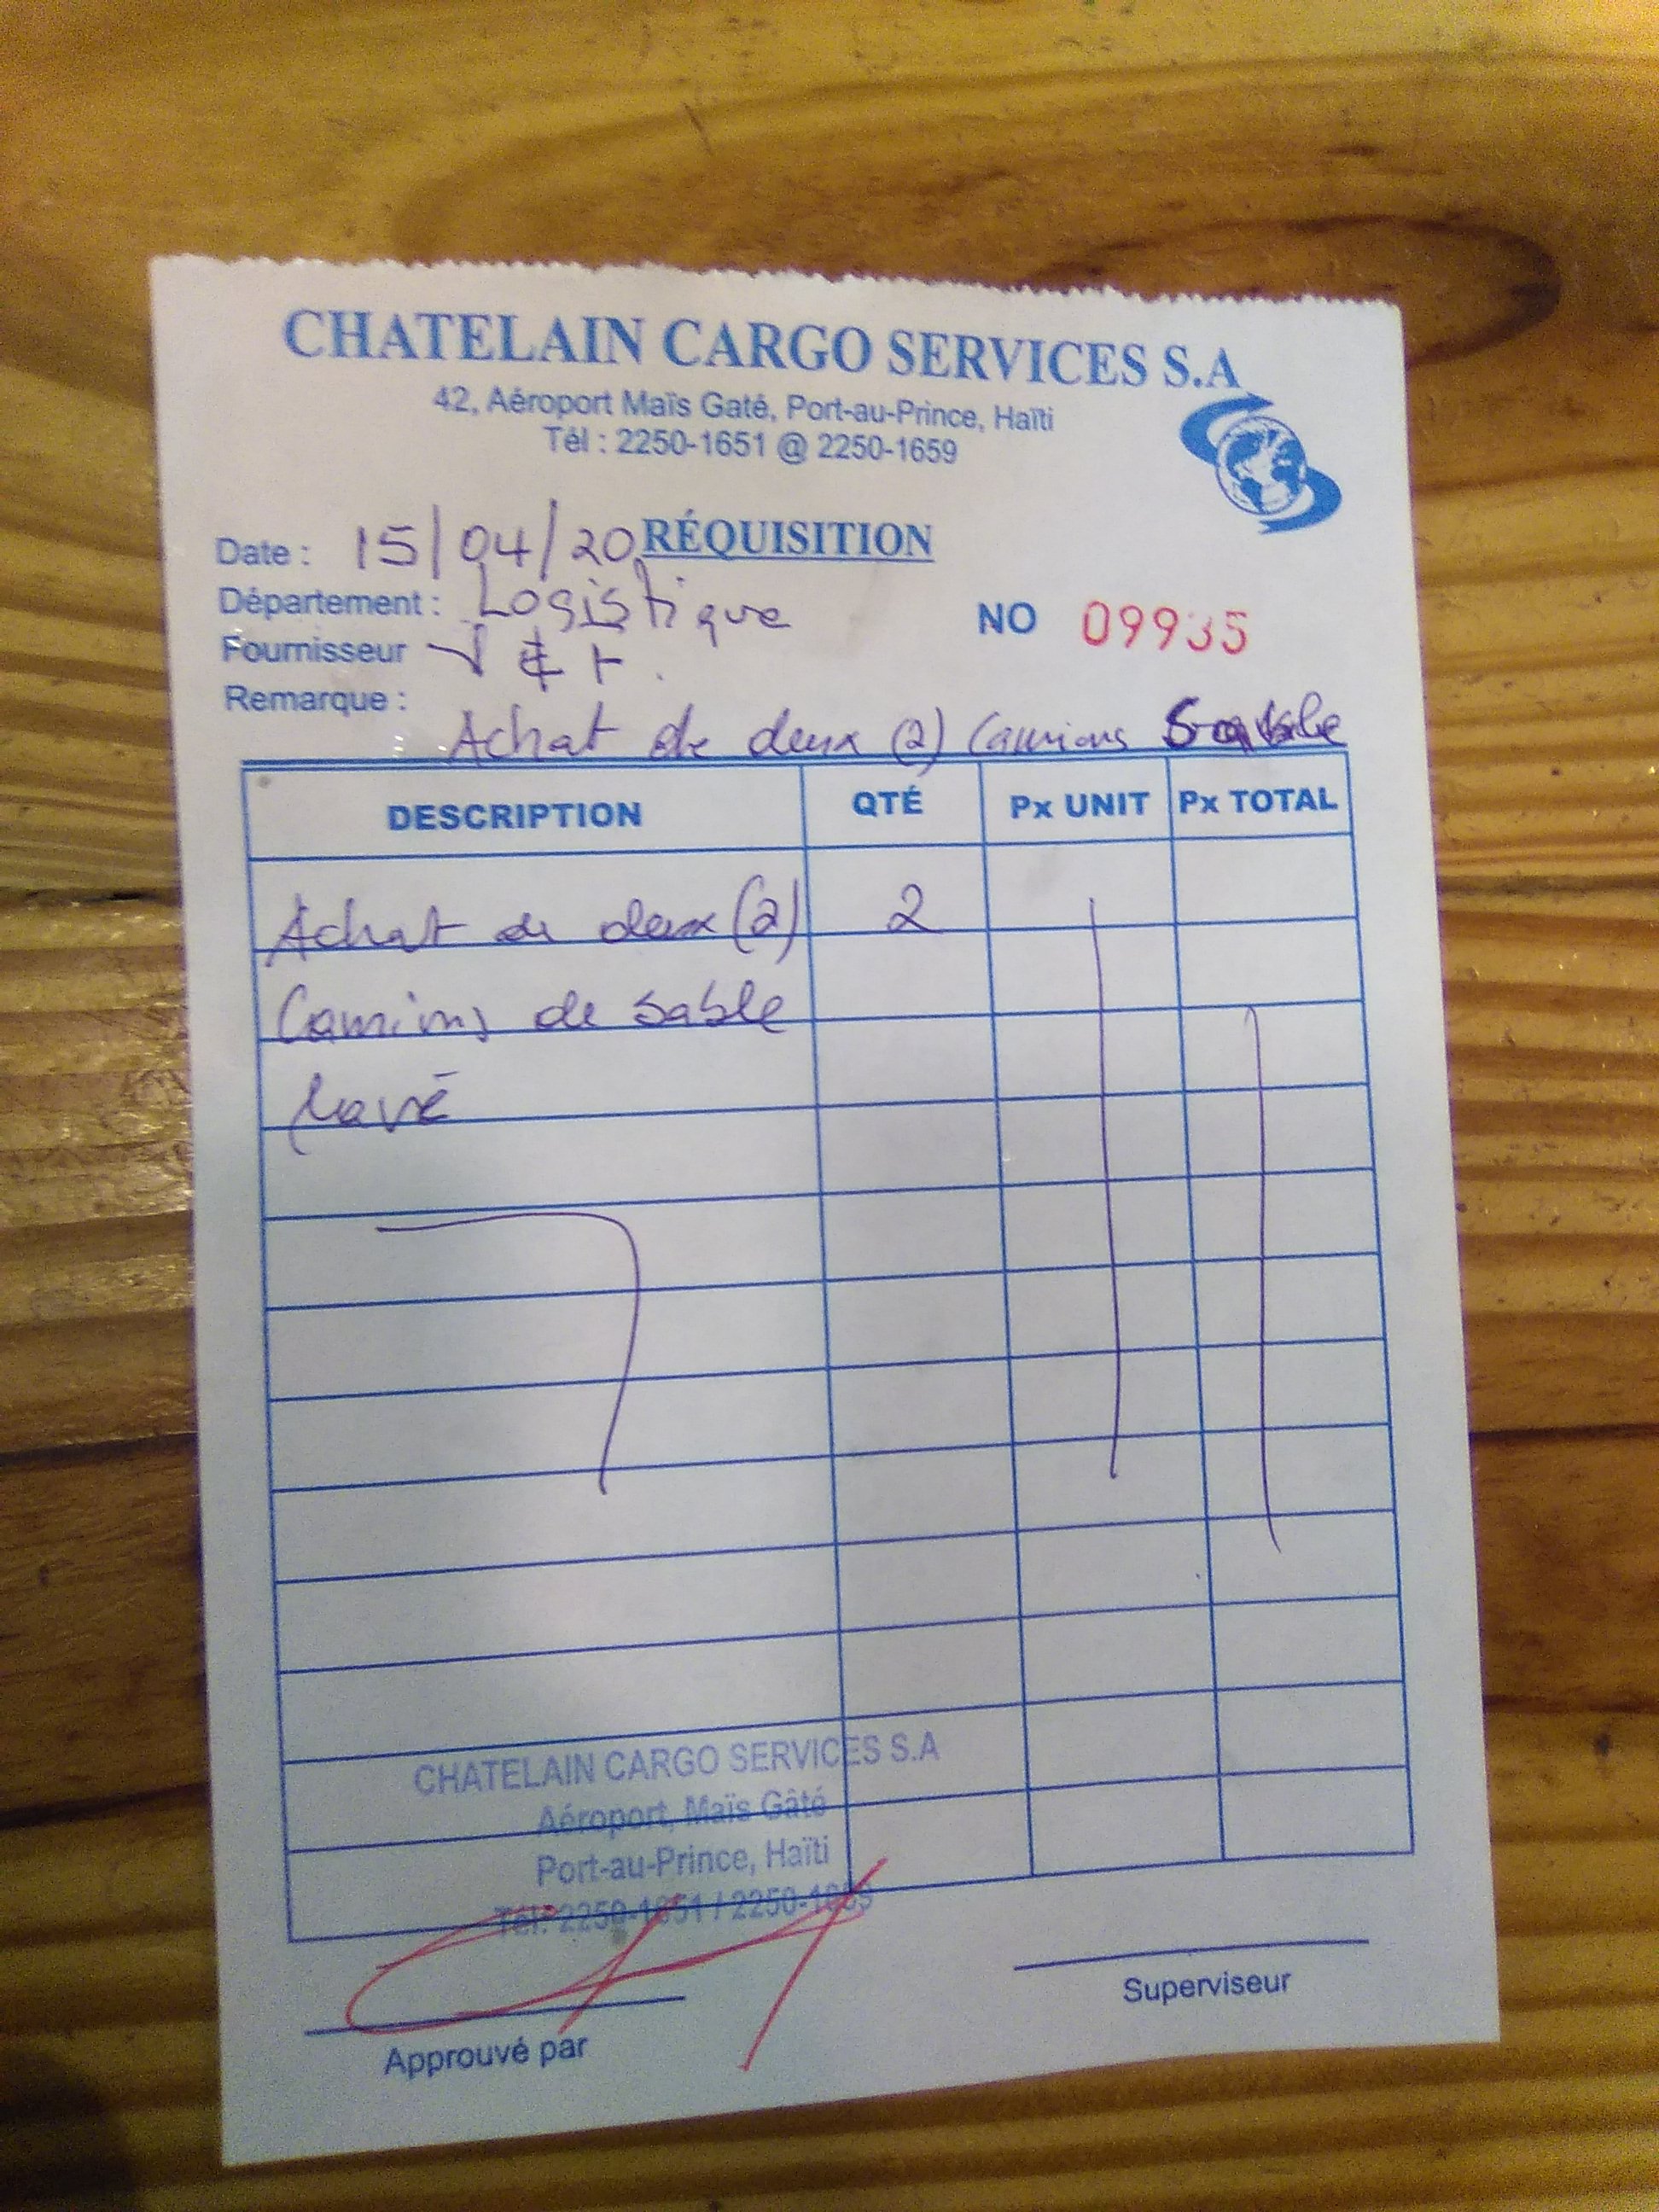 CHATELAIN CARGO SERVICES S.A
42, Aéroport Maïs Gaté, Port-au-Prince, Haïti
Tél : 2250-1651 @ 2250-1659
RÉQUISITION
Date : 15/04/20
Département : Logistique
NO 09935
Fournisseur
Remarque :
Achat de deux (2) Camions Sable
DESCRIPTION QTÉ Px UNIT Px TOTAL
Achat de deux (2) 2
Camions de sable
lavé
CHATELAIN CARGO SERVICES S.A
Aéroport, Maïs Gâté
Port-au-Prince, Haïti
Tél: 2250-1651 / 2250-1659
Approuvé par
Superviseur